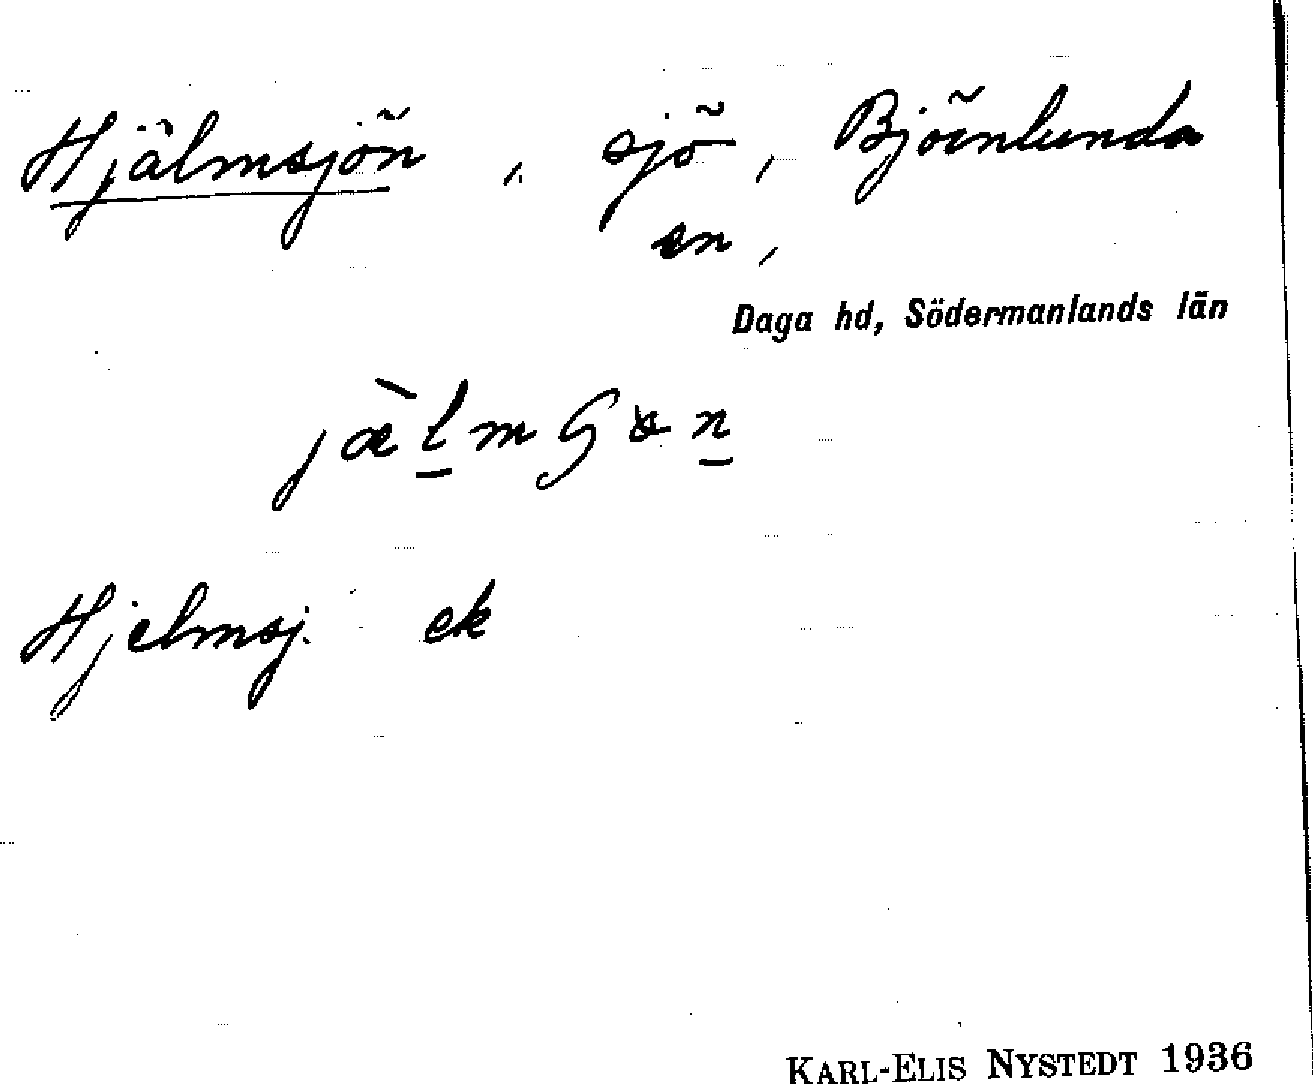 Hjälmsjön, sjö, Björnlunda
sn,
Daga hd, Södermanlands län
Hjelmsj. ek
KARL-ELIS NYSTEDT 1936